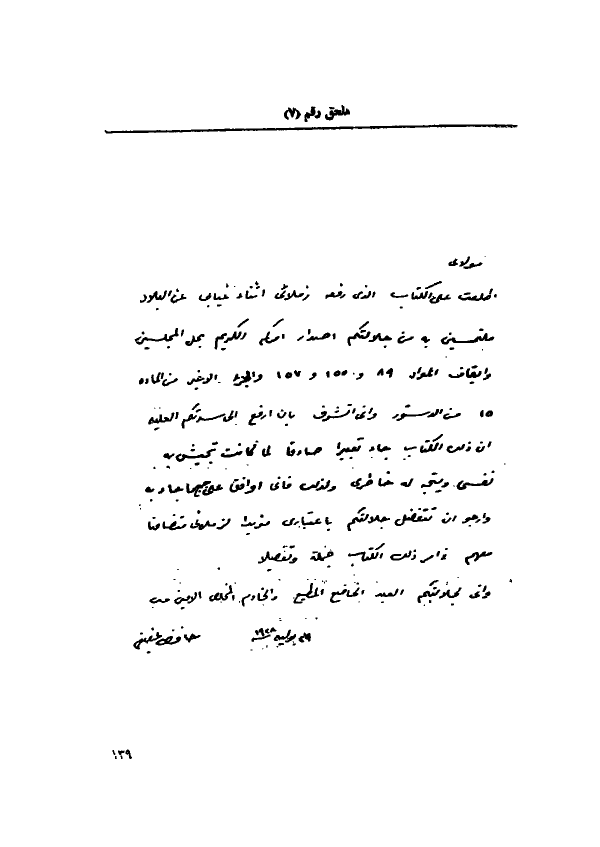 ملحق رقم (٧)
مولاى
اطلعت على الكتاب الذى رفعه زملائى اثناء غيابى عن البلاد
ملتمسين به من جلالتكم اصدار امركم الكريم بحل المجلسين
وايقاف المواد ٨٩ و ١٥٥ و ١٥٧ والجزء الاخير من المادة
١٥ من الدستور وانى اتشرف بان ارفع الى سدتكم العليه
ان ذلك الكتاب جاء تعبيرا صادقا لما كانت تجيش به
نفسى ويتجه له خاطرى ولذلك فانى اوافق على جميع ما جاء به
وارجو ان تتفضل جلالتكم باعتبارى مؤيدا لزملائى متضامنا
معهم فى امر ذلك الكتاب جملة وتفصيلا
وانى لجلالتكم العبد الخاضع المطيع والخادم المخلص الامين
يوليه ١٩٢٨ حافظ عفيفى
١٣٩